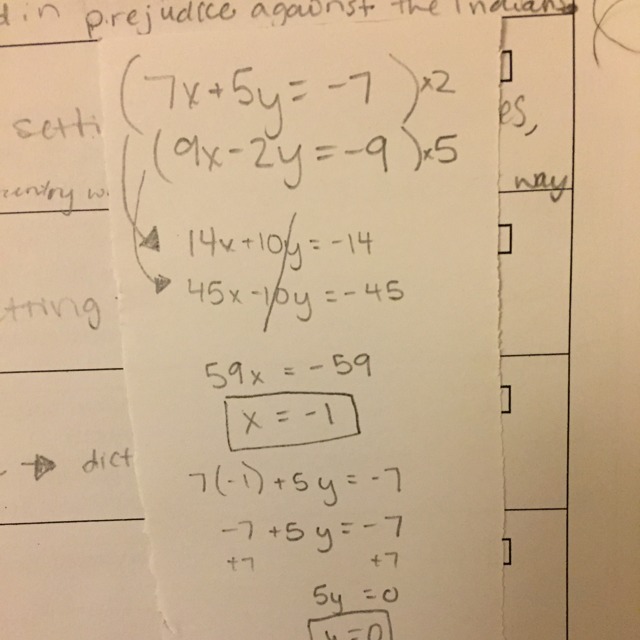 d in prejudice against the Indians
(7x+5y=-7)×2
setti
es,
(9x-2y=-9)×5
way
14x+10y=-14
45x-10y=-45
tting
59x=-59
x=-1
dict
7(-1)+5y=-7
-7+5y=-7
+7 +7
5y=0
y=0